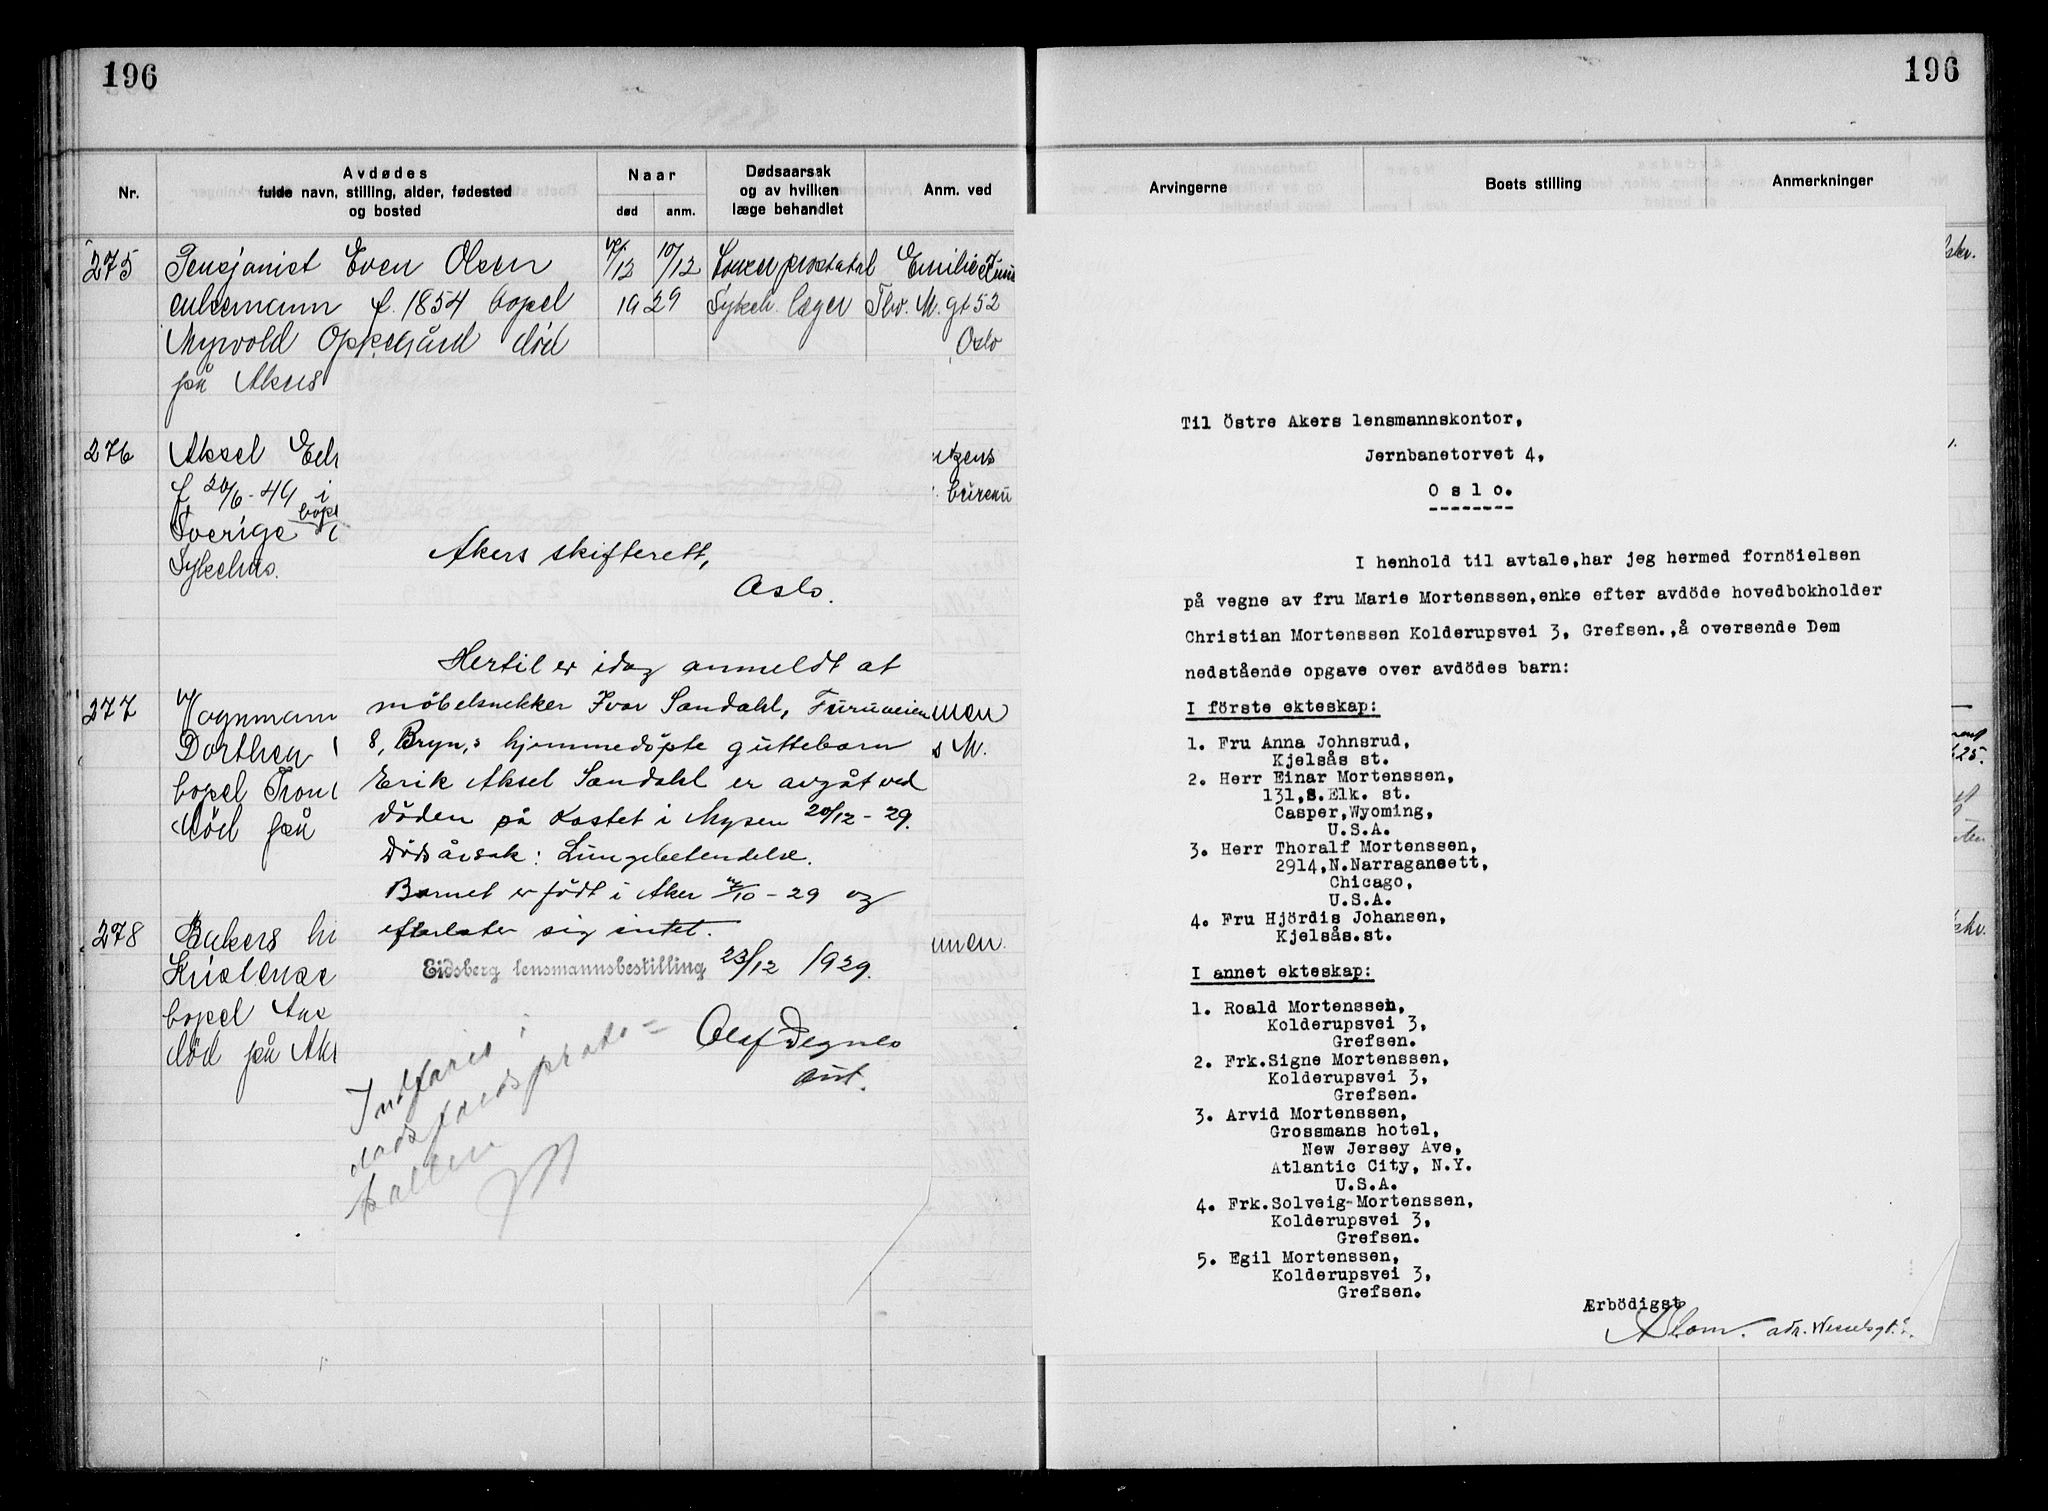 196
Nr.
Avdødes
fulde navn, stilling, alder, fødested
og bosted
Naar
død
anm.
Dødsaarsak
og av hvilken
læge behandlet
Anm. ved
275
Pensjonist Even Olsen
enkemann f. 1854 bopel
Myrvold Oppegård død
på Akers
10/12
1929
prostatal
Sykeh. læger
Emilie
Thv. M. gt 52
Oslo
276
Aksel
f 20/6-49 i
bopl
Sverige
Sykehus.
bureau
277
Vognmann
Dorthea
bopel
død på
278
Kristense
bopel
død på
Akers skifterett,
Oslo.
Hertil er idag anmeldt at
møbelsnekker Ivar Sandahl, Furuveien
8, Bryn,s hjemmedöpte guttebarn
Erik Aksel Sandahl er avgåt ved
döden på Kastet i Mysen 20/12-29.
Dödsårsak: Lungebetendelse.
Barnet er födt i Aker /10-29 og
efterlater sig intet.
Eidsberg lensmannsbestilling 23/12 1929.
Olaf Degnes
aut.
Indföres i
dødsfaldsproto=
kollen
196
Arvingerne
Boets stilling
Anmerkninger
Til Östre Akers lensmannskontor,
Jernbanetorvet 4,
Oslo.
I henhold til avtale,har jeg hermed fornöielsen
på vegne av fru Marie Mortenssen,enke efter avdöde hovedbokholder
Christian Mortenssen Kolderupsvei 3, Grefsen.,å oversende Dem
nedstående opgave over avdödes barn:
I förste ekteskap:
1. Fru Anna Johnsrud,
Kjelsås st.
2. Herr Einar Mortenssen,
131,S.Elk. st.
Casper,Wyoming,
U.S.A.
3. Herr Thoralf Mortenssen,
2914,N.Narragansett,
Chicago,
U.S.A.
4. Fru Hjördis Johansen,
Kjelsås.st.
I annet ekteskap:
1. Roald Mortenssen,
Kolderupsvei 3,
Grefsen.
2. Frk.Signe Mortenssen,
Kolderupsvei 3,
Grefsen.
3. Arvid Mortenssen,
Grossmans hotel,
New Jersey Ave,
Atlantic City, N.Y.
U.S.A.
4. Frk.Solveig-Mortenssen,
Kolderupsvei 3,
Grefsen.
5. Egil Mortenssen,
Kolderupsvei 3,
Grefsen.
Ærbödigst
adr. Wesselsgt.